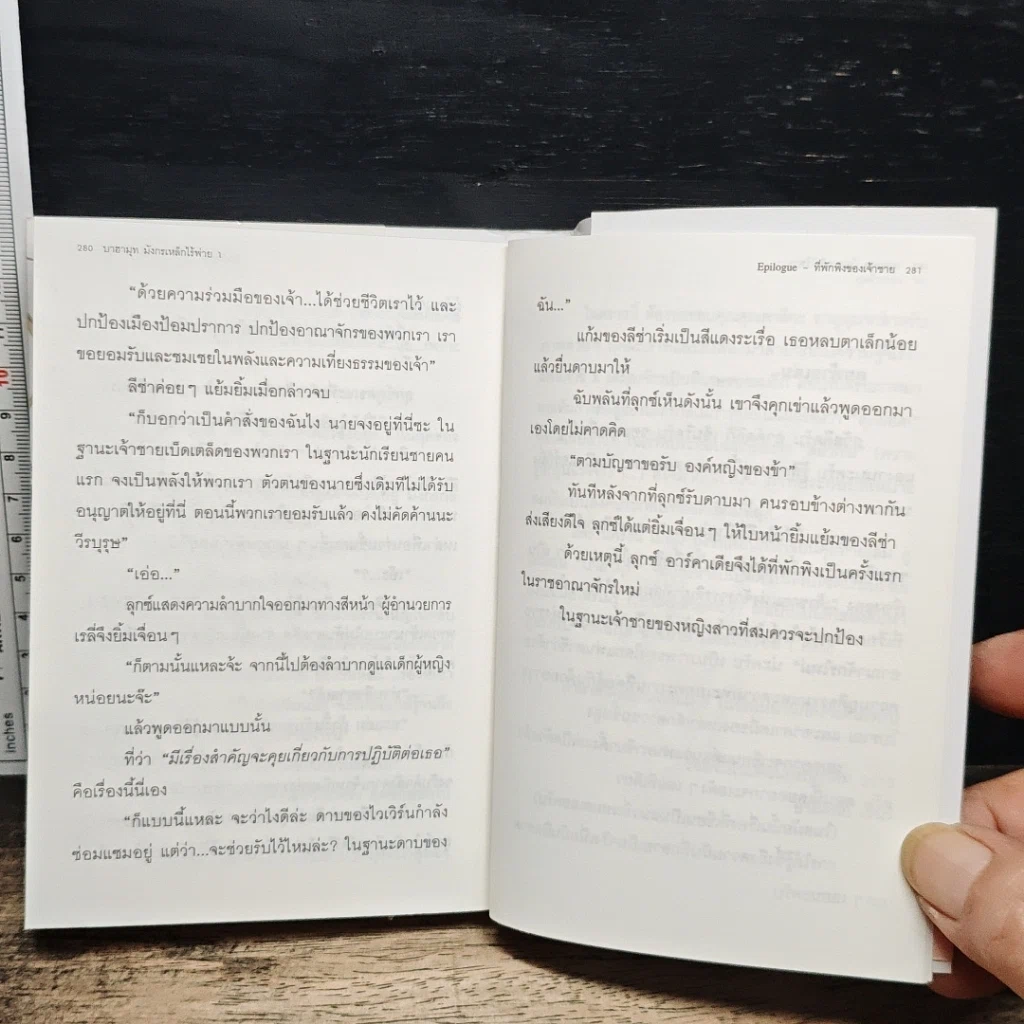 280 บาฮามุท มังกรเหล็กไร้พ่าย 1
“ด้วยความร่วมมือของเจ้า...ได้ช่วยชีวิตเราไว้ และ
ปกป้องเมืองป้อมปราการ ปกป้องอาณาจักรของพวกเรา เรา
ขอยอมรับและชมเชยในพลังและความเที่ยงธรรมของเจ้า”
ลีซ่าค่อยๆ แย้มยิ้มเมื่อกล่าวจบ
“ก็บอกว่าเป็นคำสั่งของฉันไง นายจงอยู่ที่นี่ซะ ใน
ฐานะเจ้าชายเบ็ดเตล็ดของพวกเรา ในฐานะนักเรียนชายคน
แรก จงเป็นพลังให้พวกเรา ตัวตนของนายซึ่งเดิมทีไม่ได้รับ
อนุญาตให้อยู่ที่นี่ ตอนนี้พวกเรายอมรับแล้ว คงไม่คัดค้านนะ
วีรบุรุษ”
“เอ่อ...”
ลุกซ์แสดงความลำบากใจออกมาทางสีหน้า ผู้อำนวยการ
เรลี่จึงยิ้มเจื่อนๆ
“ก็ตามนั้นแหละจ้ะ จากนี้ไปต้องลำบากดูแลเด็กผู้หญิง
หน่อยนะจ๊ะ”
แล้วพูดออกมาแบบนั้น
ที่ว่า “มีเรื่องสำคัญจะคุยเกี่ยวกับการปฏิบัติต่อเธอ”
คือเรื่องนี้นี่เอง
“ก็แบบนี้แหละ จะว่าไงดีล่ะ ดาบของไวเวิร์นกำลัง
ซ่อมแซมอยู่ แต่ว่า...จะช่วยรับไว้ไหมล่ะ? ในฐานะดาบของ
Epilogue – ที่พักพิงของเจ้าชาย 281
ฉัน...”
แก้มของลีซ่าเริ่มเป็นสีแดงระเรื่อ เธอหลบตาเล็กน้อย
แล้วยื่นดาบมาให้
ฉับพลันที่ลุกซ์เห็นดังนั้น เขาจึงคุกเข่าแล้วพูดออกมา
เองโดยไม่คาดคิด
“ตามบัญชาขอรับ องค์หญิงของข้า”
ทันทีหลังจากที่ลุกซ์รับดาบมา คนรอบข้างต่างพากัน
ส่งเสียงดีใจ ลุกซ์ได้แต่ยิ้มเจื่อนๆ ให้ใบหน้ายิ้มแย้มของลีซ่า
ด้วยเหตุนี้ ลุกซ์ อาร์คาเดียจึงได้ที่พักพิงเป็นครั้งแรก
ในราชอาณาจักรใหม่
ในฐานะเจ้าชายของหญิงสาวที่สมควรจะปกป้อง
inches
10
9
8
7
6
5
4